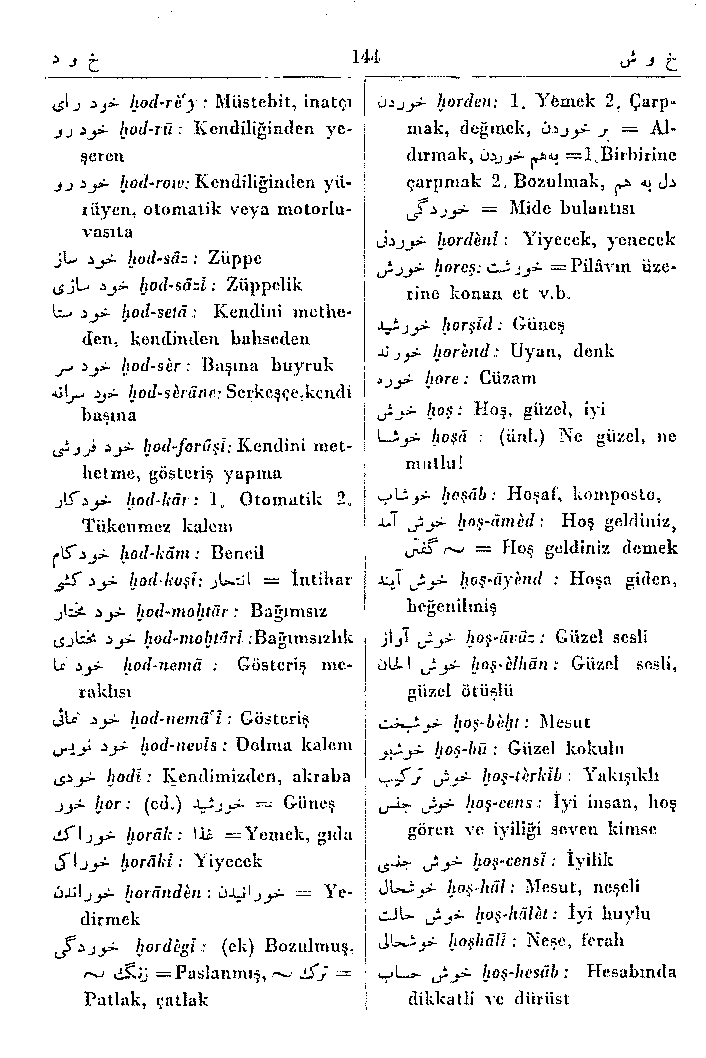 خ و د 144 خ و ش
خود رأی ḫod-rè'y : Müstebit, inatçı
خود رو ḫod-rū : Kendiliğinden ye-
şeren
خود رو ḫod-row: Kendiliğinden yü-
rüyen, otomatik veya motorlu-
vasıta
خود ساز ḫod-sāz : Züppe
خود سازی ḫod-sāzī : Züppelik
خود ستا ḫod-setā : Kendini methe-
den, kendinden bahseden
خود سر ḫod-sèr : Başına buyruk
خود سرانه ḫod-sèrāne: Serkeşçe,kendi
başına
خود فروشی ḫod-forūşī: Kendini met-
hetme, gösteriş yapma
خودکار ḫod-kār : 1. Otomatik 2.
Tükenmez kalem
خودکام ḫod-kām : Bencil
خود کشی ḫod-koşī: انتحار = İntihar
خود مختار ḫod-moḫtār : Bağımsız
خود مختاری ḫod-moḫtārī :Bağımsızlık
خود نما ḫod-nemā : Gösteriş me-
raklısı
خود نمائی ḫod-nemā'ī : Gösteriş
خود نویس ḫod-nevīs : Dolma kalem
خودی ḫodī : Kendimizden, akraba
خور ḫor : (ed.) خورشید = Güneş
خوراک ḫorāk : غذا =Yemek, gıda
خوراکی ḫorākī : Yiyecek
خوراندن ḫorāndèn : خورانیدن = Ye-
dirmek
خوردگی ḫordègī : (ek) Bozulmuş,
زنگ ~ =Paslanmış, ترک ~ =
Patlak, çatlak
خوردن ḫorden: 1. Yèmek 2. Çarp-
mak, değmek, بر خوردن = Al-
dırmak, بهم خوردن =1.Birbirine
çarpmak 2. Bozulmak, دل به هم
خوردگی = Mide bulantısı
خوردنی ḫordènī : Yiyecek, yenecek
خورش ḫoreş: خورشت =Pilâvın üze-
rine konan et v.b.
خورشید ḫorşīd : Güneş
خورند ḫorènd : Uyan, denk
خوره ḫore : Cüzam
خوش ḫoş : Hoş, güzel, iyi
خوشا ḫoşā : (ünl.) Ne güzel, ne
mutlu!
خوشاب ḫoşāb : Hoşaf, komposto,
خوش آمد ḫoş-āmèd : Hoş geldiniz,
~ گفتن = Hoş geldiniz demek
خوش آیند ḫoş-āyènd : Hoşa giden,
beğenilmiş
خوش آواز ḫoş-āvāz : Güzel sesli
خوش الحان ḫoş-èlhān : Güzel sesli,
güzel ötüşlü
خوشبخت ḫoş-bèḫt : Mesut
خوشبو ḫoş-bū : Güzel kokulu
خوش ترکیب ḫoş-tèrkīb : Yakışıklı
خوش جنس ḫoş-cens : İyi insan, hoş
gören ve iyiliği seven kimse
خوش جنسی ḫoş-censī : İyilik
خوشحال ḫoş-hāl : Mesut, neşeli
خوش حالت ḫoş-hālèt : İyi huylu
خوشحالی ḫoşhālī : Neşe, ferah
خوش حساب ḫoş-hesāb : Hesabında
dikkatli ve dürüst